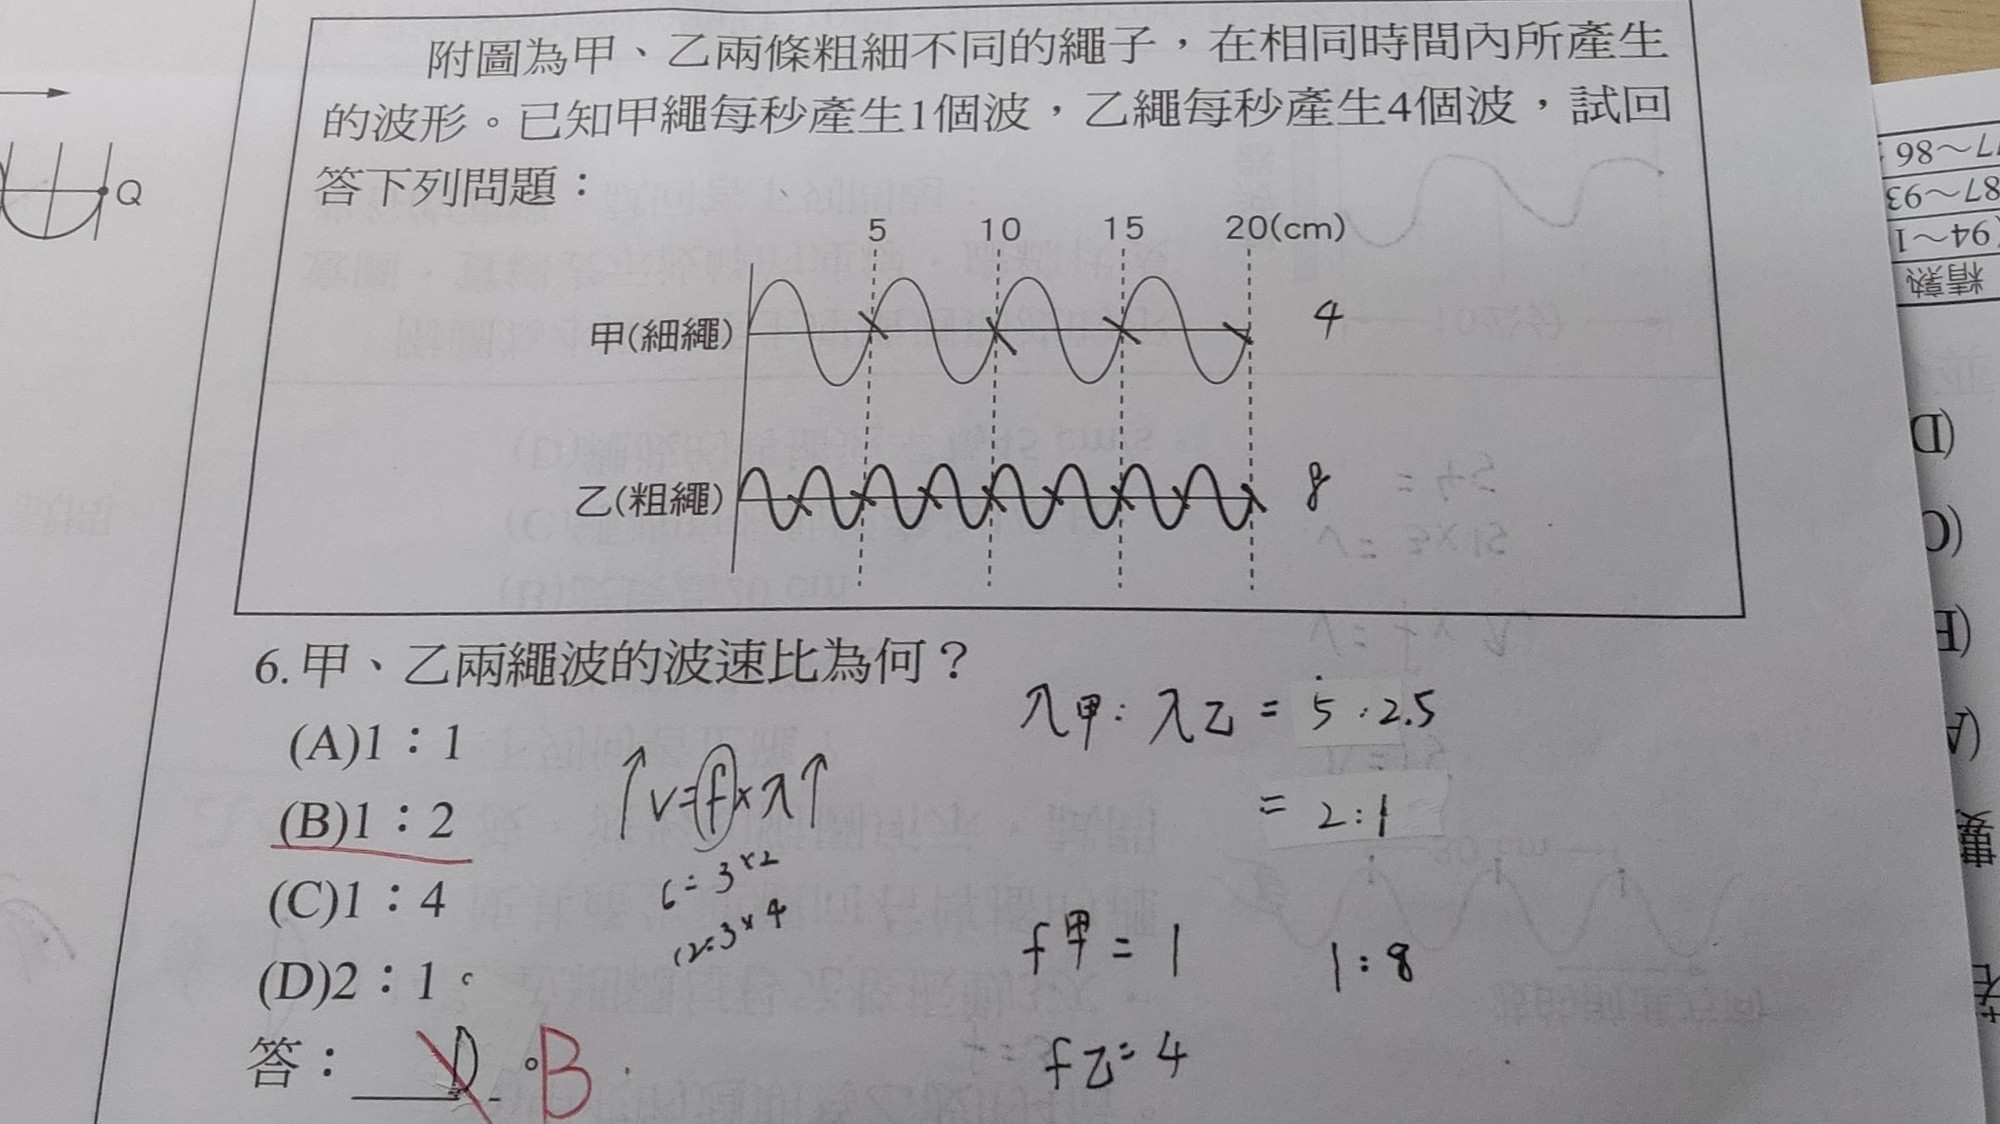 附圖為甲、乙兩條粗細不同的繩子，在相同時間內所產生
的波形。已知甲繩每秒產生1個波，乙繩每秒產生4個波，試回
答下列問題：
5 10 15 20(cm)
甲(細繩) 4
乙(粗繩) 8
Q
6.甲、乙兩繩波的波速比為何？
(A)1：1
(B)1：2
(C)1：4
(D)2：1。
答：D。B
λ甲：λ乙 = 5：2.5
= 2：1
↑v=f×λ↑
6=3×2
12=3×4
f甲=1 1：8
f乙=4
77～86
87～93
94～1
精熟
(D)
(A)